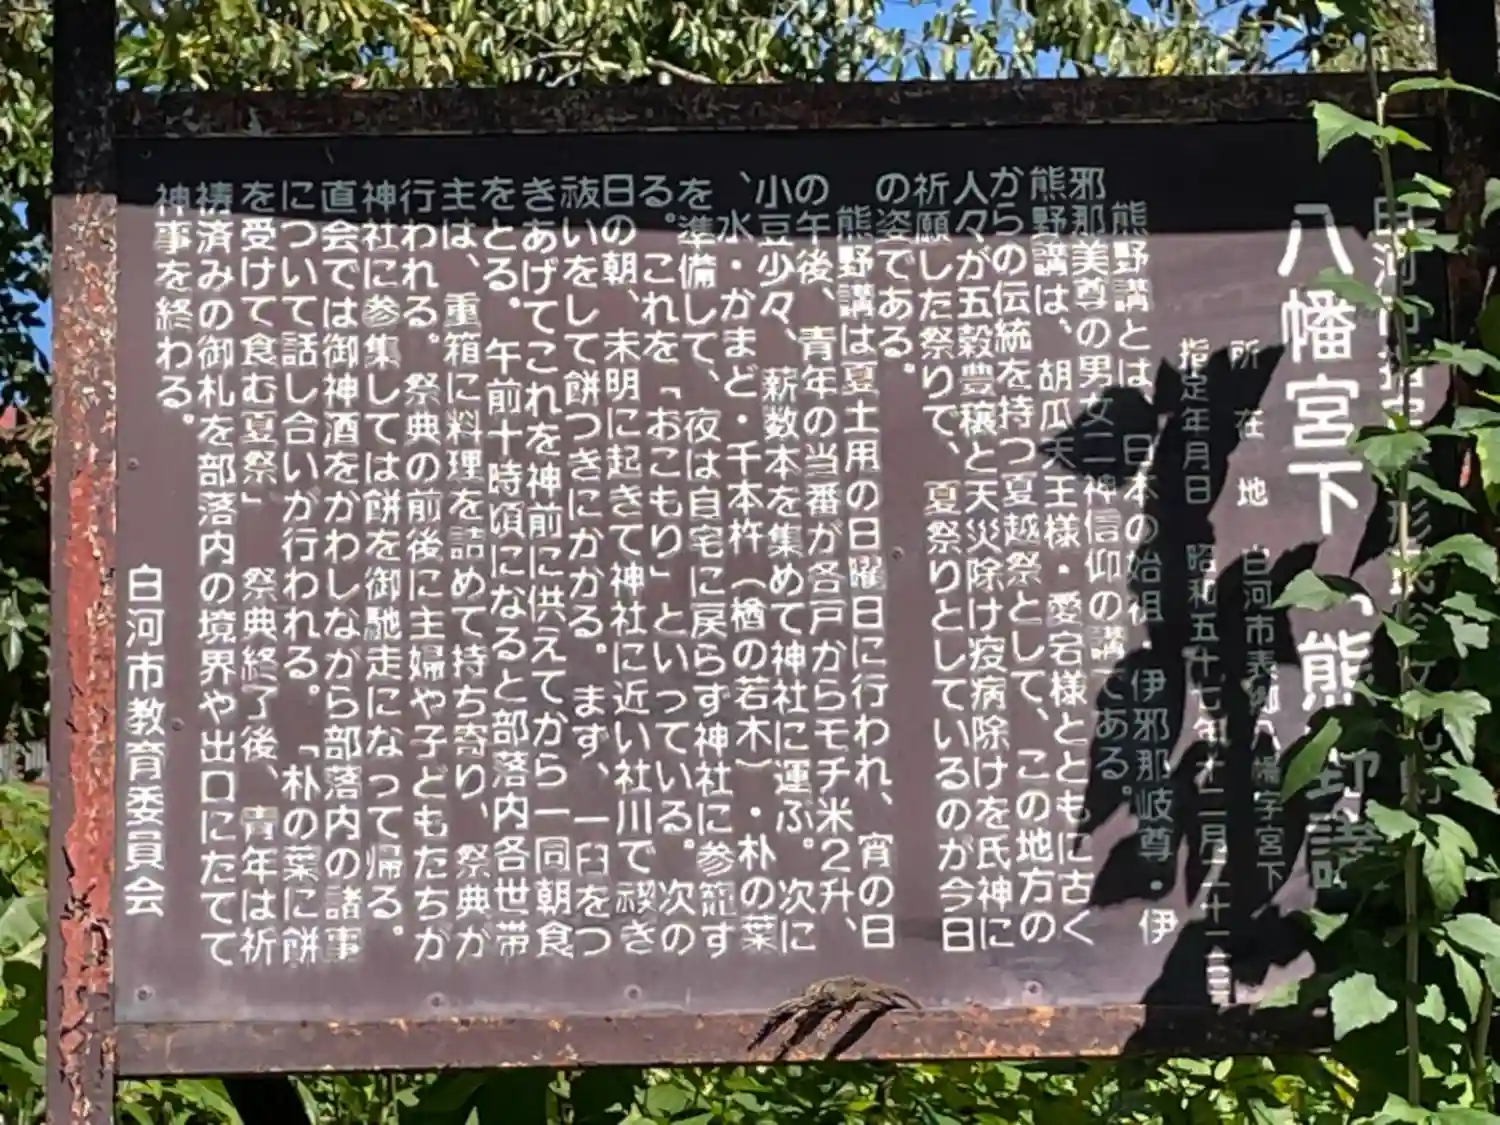 白河市指定
八幡宮下「熊野講
所在地 白河市表郷八幡字宮下
指定年月日 昭和五十七年十二月二十二日
熊野講とは、日本の始祖・伊邪那岐尊・伊
邪那美尊の男女二神信仰の講である。
熊野講は、胡瓜天王様・愛宕様とともに古く
からの伝統を持つ夏越祭として、この地方の
人々が五穀豊穣と天災除け疫病除けを氏神に
祈願した祭りで、夏祭りとしているのが今日
の姿である。
熊野講は夏土用の日曜日に行われ、宵の日
の午後、青年の当番が各戸からモチ米2升、
小豆少々、薪数本を集めて神社に運ぶ。次に
、水・かまど・千本杵(楢の若木)・朴の葉
を準備して、夜は自宅に戻らず神社に参籠す
る。これを「おこもり」といっている。次の
日の朝、未明に起きて神社に近い社川で禊き
祓いをして餅つきにかかる。まず、一臼をつ
きあげてこれを神前に供えてから一同朝食
をとる。午前十時頃になると部落内各世帯
主は、重箱に料理を詰めて持ち寄り、祭典が
行われる。祭典の前後に主婦や子どもたちが
神社に参集しては餅を御馳走になって帰る。
直会では御神酒をかわしながら部落内の諸事
について話し合いが行われる。「朴の葉に餅
を受けて食む夏祭」祭典終了後、青年は祈
祷済みの御札を部落内の境界や出口にたてて
神事を終わる。
白河市教育委員会